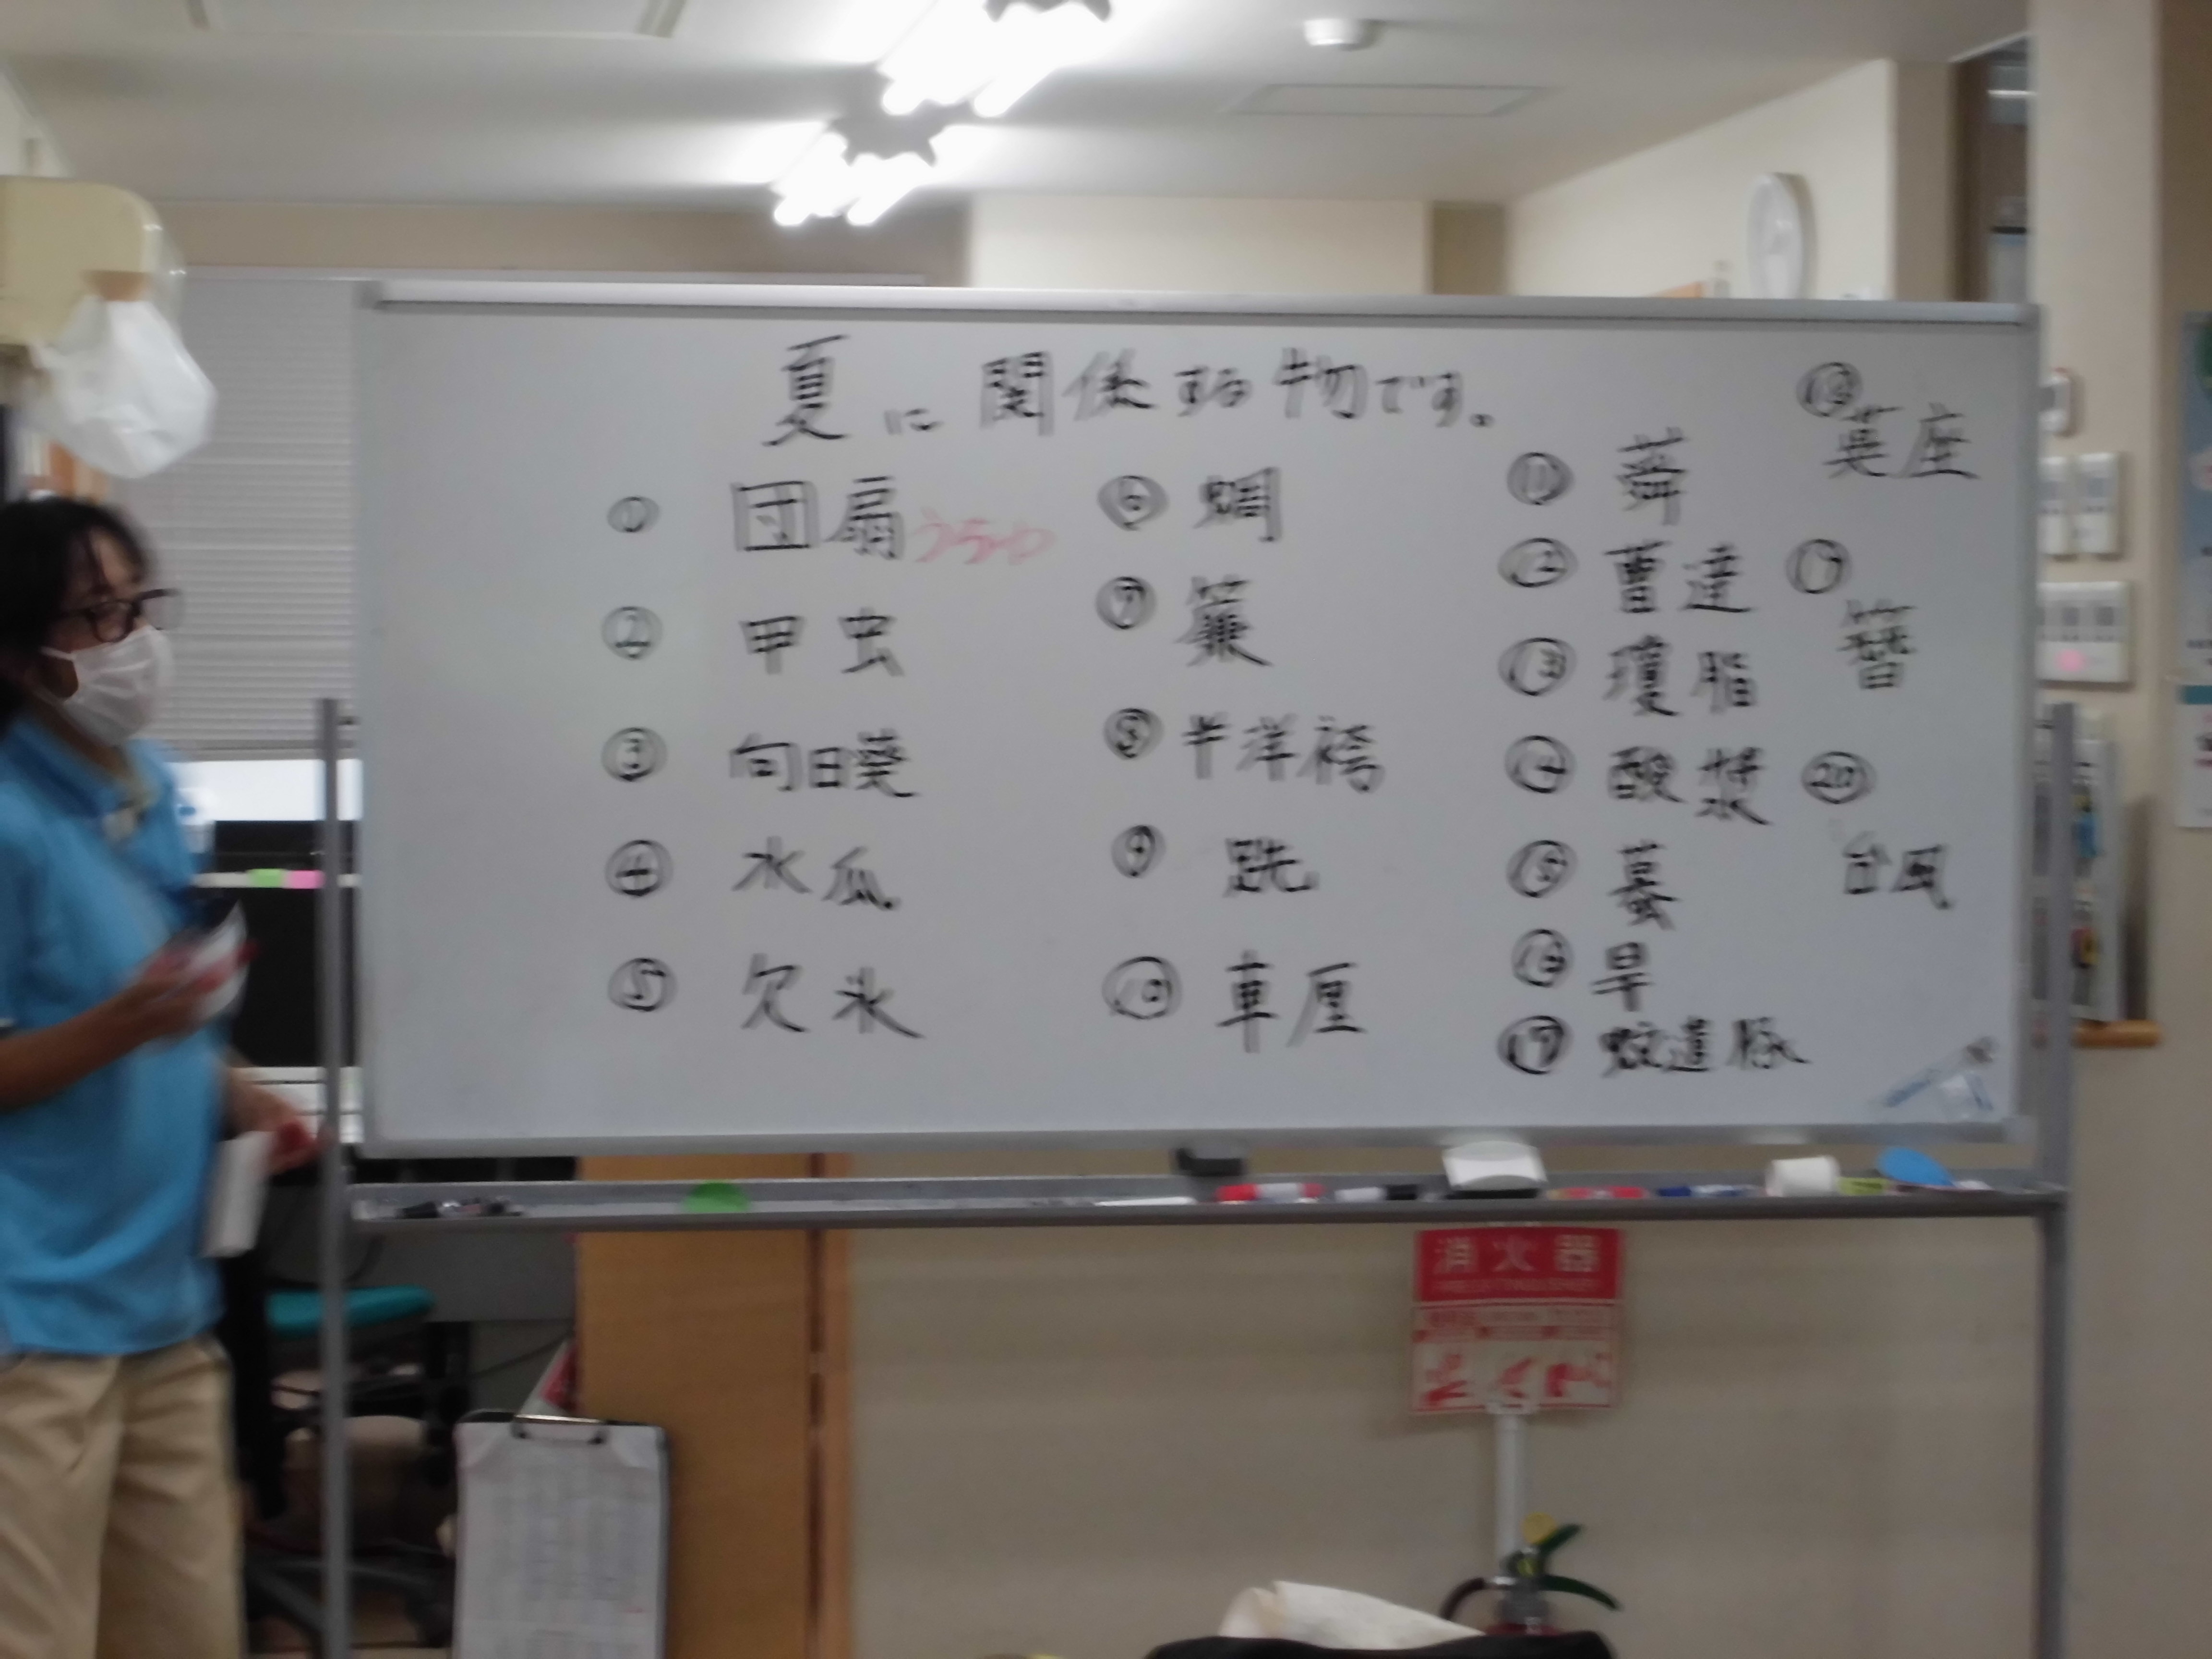 夏に関係する物です。
① 団扇 うちわ
② 甲虫
③ 向日葵
④ 水瓜
⑤ 欠氷
⑥ 蜩
⑦ 簾
⑧ 半洋袴
⑨ 跣
⑩ 車厘
⑪ 蕣
⑫ 曹達
⑬ 瓊脂
⑭ 酸漿
⑮ 蟇
⑯ 旱
⑰ 蚊遣豚
⑱ 茣座
⑲ 簪
⑳ 台風
消火器